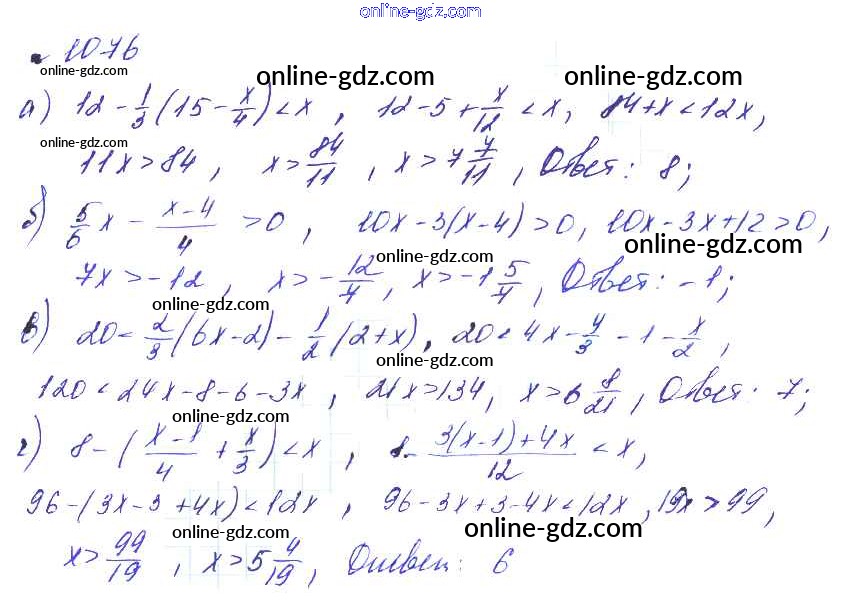 online-gdz.com
1076
online-gdz.com online-gdz.com online-gdz.com
а) 12 - 1/3 (15 - x/4) < x, 12 - 5 + x/12 < x, 84 + x < 12x,
online-gdz.com
11x > 84, x > 84/11, x > 7 7/11, Ответ: 8;
б) 5/6 x - (x-4)/4 > 0, 10x - 3(x-4) > 0, 10x - 3x + 12 > 0,
online-gdz.com online-gdz.com
7x > -12, x > -12/7, x > -1 5/7, Ответ: -1;
online-gdz.com
в) 20 < 2/3 (6x-2) - 1/2 (2+x), 20 < 4x - 4/3 - 1 - x/2,
online-gdz.com
120 < 24x - 8 - 6 - 3x, 21x > 134, x > 6 8/21, Ответ: 7;
online-gdz.com
г) 8 - ((x-1)/4 + x/3) < x, 8 - (3(x-1)+4x)/12 < x,
online-gdz.com
96 - (3x - 3 + 4x) < 12x, 96 - 3x + 3 - 4x < 12x, 19x > 99,
online-gdz.com online-gdz.com
x > 99/19, x > 5 4/19, Ответ: 6